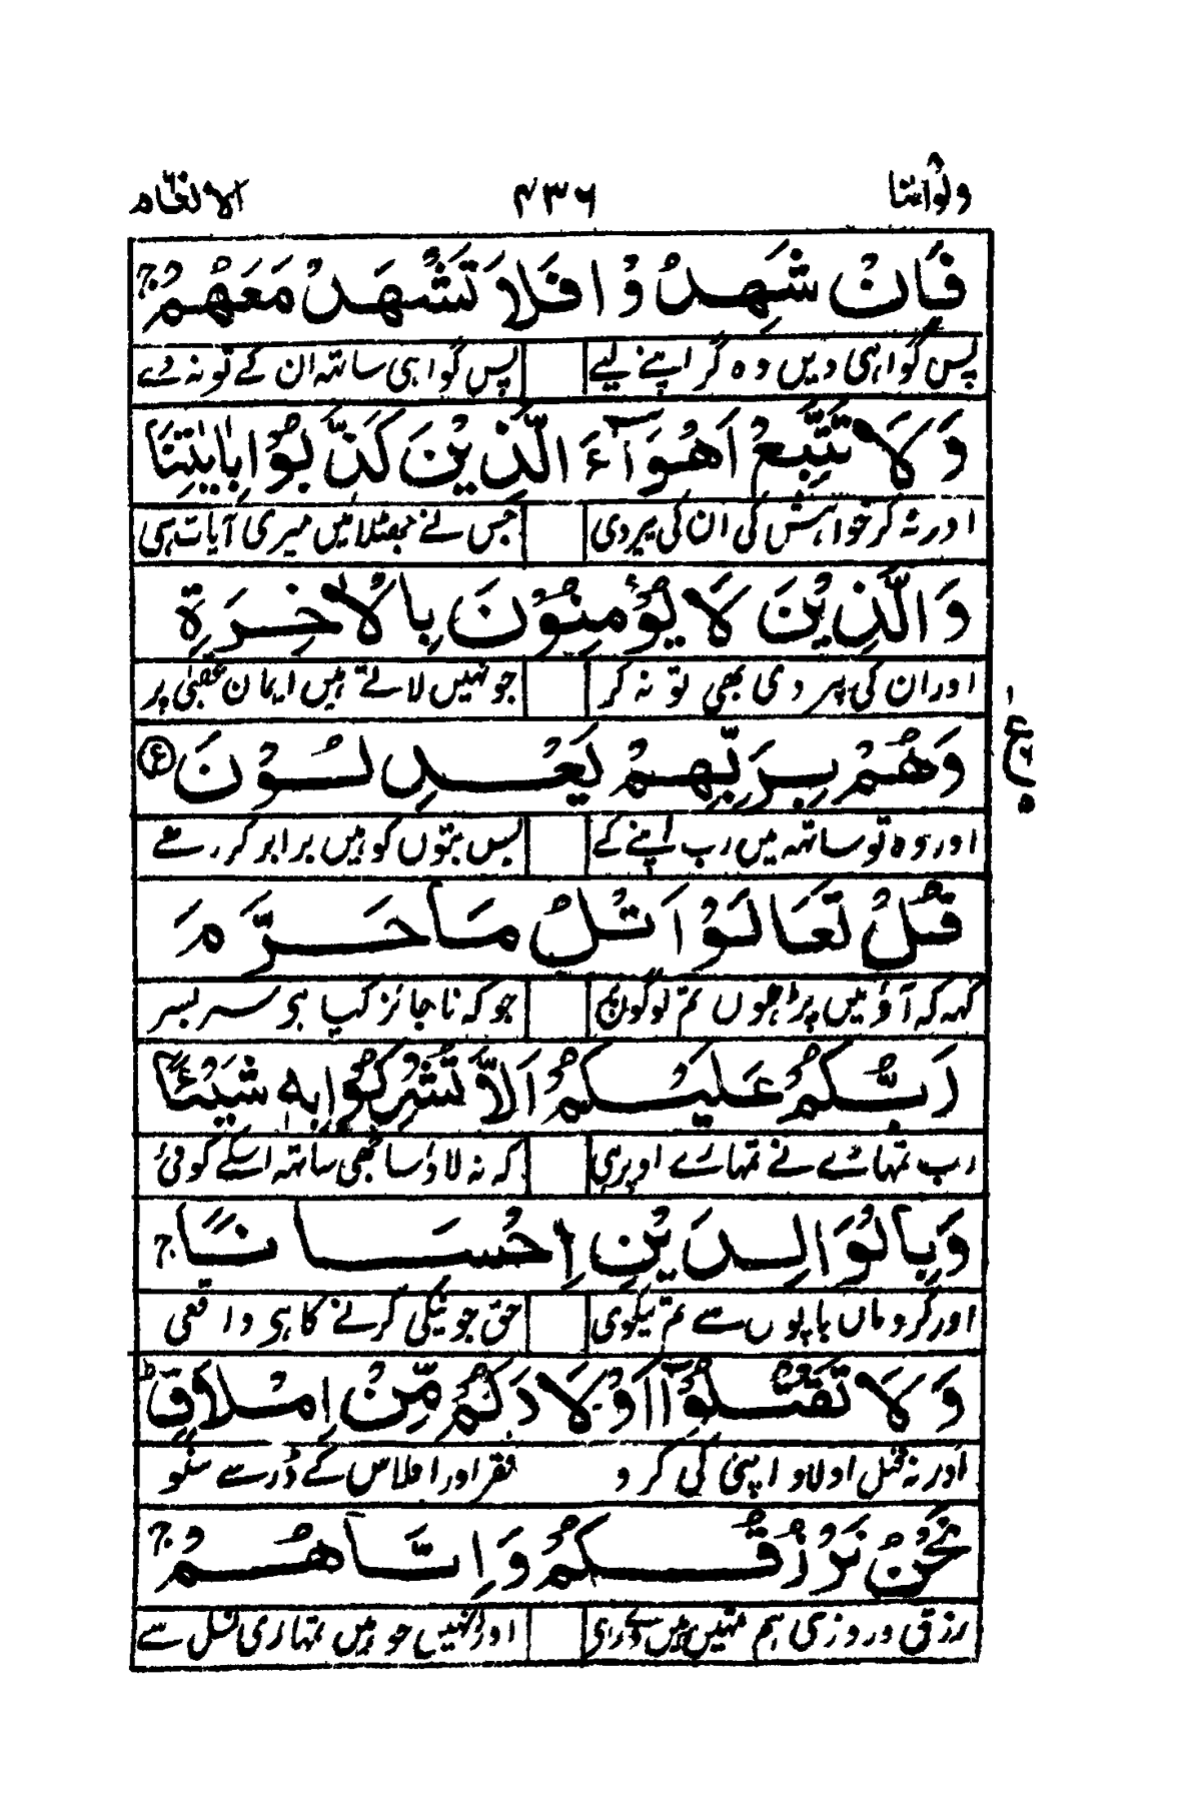 ولواننا ۴۳۶ الانعام
فَاِنْ شَهِدُوْا فَلَا تَشْهَدْ مَعَهُمْ ۚ
پس گواہی دیں وہ گر اپنے لیے پس گواہی ساتھ ان کے تو نہ دے
وَلَا تَتَّبِعْ اَهْوَآءَ الَّذِيْنَ كَذَّبُوْا بِاٰيٰتِنَا
اور نہ کر خواہش کی ان کی پیروی جس نے جھٹلائیں میری آیات ہی
وَالَّذِيْنَ لَا يُؤْمِنُوْنَ بِالْاٰخِرَةِ
اور ان کی پیروی بھی تو نہ کر جو نہیں لاتے ہیں ایمان عقبیٰ پر
وَهُمْ بِرَبِّهِمْ يَعْدِلُوْنَ
اور وہ تو ساتھ میں رب اپنے کے بس بتوں کو ہیں برابر کر رہے
قُلْ تَعَالَوْا اَتْلُ مَا حَرَّمَ
کہہ کہ آؤ میں پڑھوں تم لوگوں جو کہ ناجائز کیا ہے سر بسر
رَبُّكُمْ عَلَيْكُمْ اَلَّا تُشْرِكُوْا بِهٖ شَيْئًا
رب تمہارے نے تمہارے اوپر ہی کہ نہ لاؤ ساجھی ساتھ اسکے کوئی
وَّبِالْوَالِدَيْنِ اِحْسَانًا ۚ
اور کرو ماں باپوں سے تم نیکوی حق جو نیکی کرنے کا ہے واقعی
وَلَا تَقْتُلُوْٓا اَوْلَادَكُمْ مِّنْ اِمْلَاقٍ ؕ
اور نہ قتل اولاد اپنی کی کرو فقر اور افلاس کے ڈر سے
نَحْنُ نَرْزُقُكُمْ وَاِيَّاهُمْ ۚ
رزق و روزی ہم تمہیں ہیں اور انہیں جو ہیں تمہاری نسل سے
ع